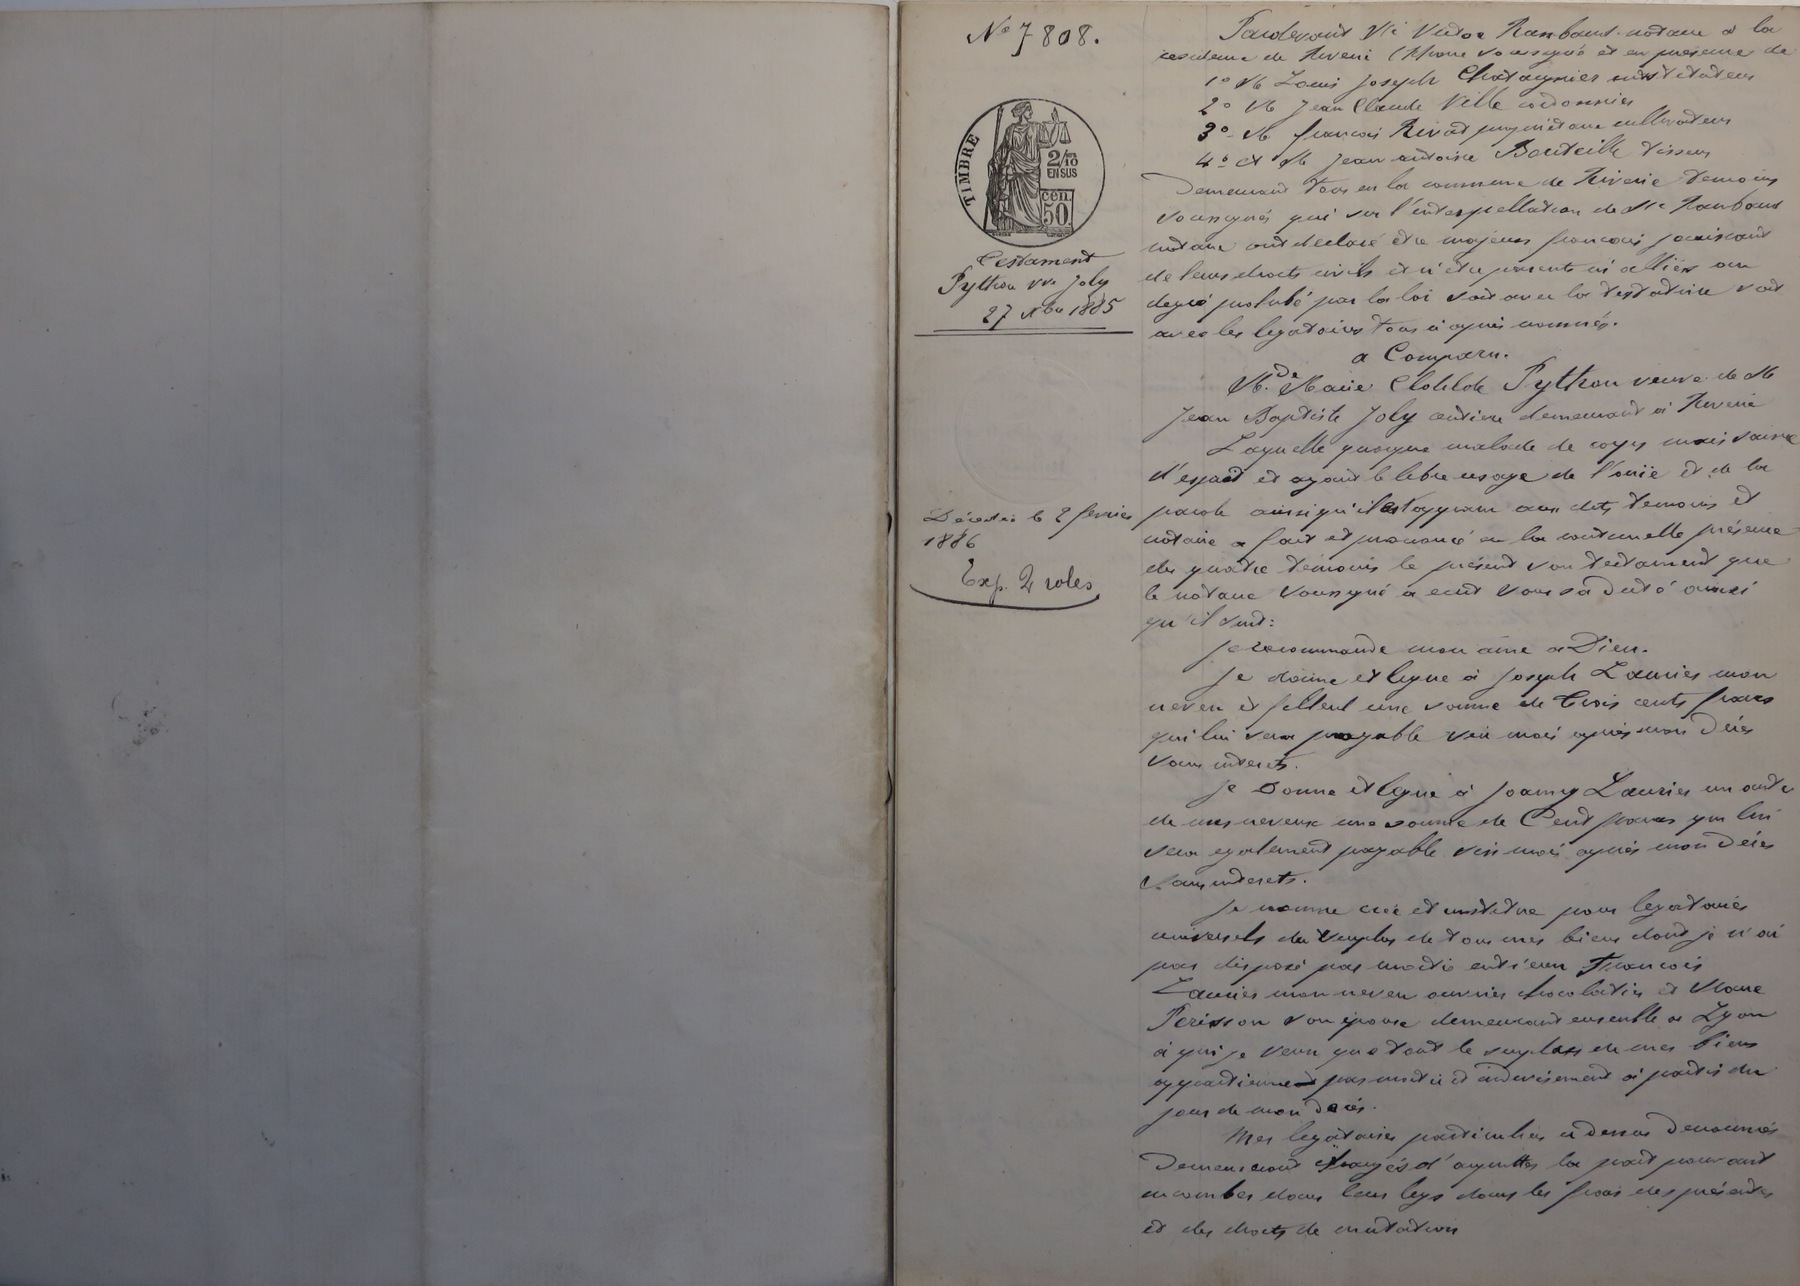 No 7808.
TIMBRE
2/10
EN SUS
50
CEN.
Testament
Python vve Joly
27 Xbre 1885
Décédée le 2 février
1886
Exp. 2 roles
Pardevant Me Victor Rambaud notaire à la
résidence de Riverie (Rhône soussigné et en présence de
1o Mr Louis Joseph Chatagnier instituteur
2o Mr Jean Claude Ville cordonnier
3o Mr françois Rivat propriétaire cultivateur
4o et Mr Jean antoine Bouteille tisseur
Demeurant tous en la commune de Riverie témoins
soussignés qui sur l'interpellation de Me Rambaud
notaire ont déclaré être majeurs français jouissant
de leurs droits civils et n'être parents ni alliés au
degré prohibé par la loi soit avec la testatrice soit
avec les légataires tous ci après nommés.
a Comparu.
Mde Marie Clotilde Python veuve de Mr
Jean Baptiste Joly rentière demeurant à Riverie
Laquelle quoique malade de corps mais saine
d'esprit et ayant le libre usage de l'ouïe et de la
parole ainsi qu'il est apparu aux dits témoins et
notaire a fait et prononcé en la continuelle présence
des quatre témoins le présent son testament que
le notaire soussigné a écrit sous sa dictée ainsi
qu'il suit:
Je recommande mon âme à Dieu.
Je donne et lègue à Joseph Laurier mon
neveu et filleul une somme de trois cents francs
qui lui sera payable six mois après mon décès
sans intérêts.
Je Donne et lègue à Joanny Laurier un autre
de mes neveux une somme de Cent francs qui lui
sera également payable six mois après mon décès
sans intérêts.
Je nomme crée et institue pour légataires
universels du surplus de tous mes biens dont je n'ai
pas disposé par moitié entr'eux François
Laurier mon neveu ouvrier chocolatier et
Perisson son épouse demeurant ensemble à Lyon
à qui je veux que tout le surplus de mes biens
appartienne par moitié et indivisément à partir du
jour de mon décès.
Mes légataires particuliers ci dessus dénommés
Demeureront chargés d'acquitter la part pouvant
incomber dans leur legs dans les frais des présentes
et des droits de mutation